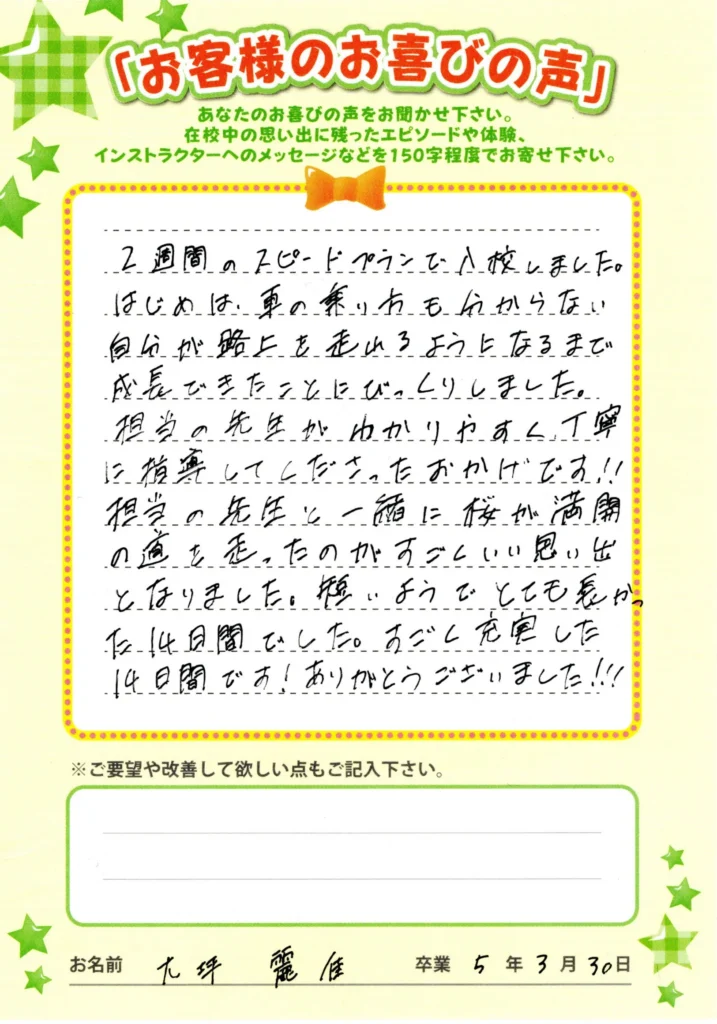 「お客様のお喜びの声」
あなたのお喜びの声をお聞かせ下さい。
在校中の思い出に残ったエピソードや体験、
インストラクターへのメッセージなどを150字程度でお寄せ下さい。
2週間のスピードプランで入校しました。
はじめは、車の乗り方も分からない
自分が路上を走れるようになるまで
成長できたことにびっくりしました。
担当の先生がわかりやすく、丁寧
に指導してくださったおかげです!!
担当の先生と一緒に桜が満開
の道を走ったのがすごくいい思い出
となりました。短いようでとても長かっ
た14日間でした。すごく充実した
14日間です!ありがとうございました!!!
※ご要望や改善して欲しい点もご記入下さい。
お名前 大坪 麗佳 卒業 5 年 3 月 30 日